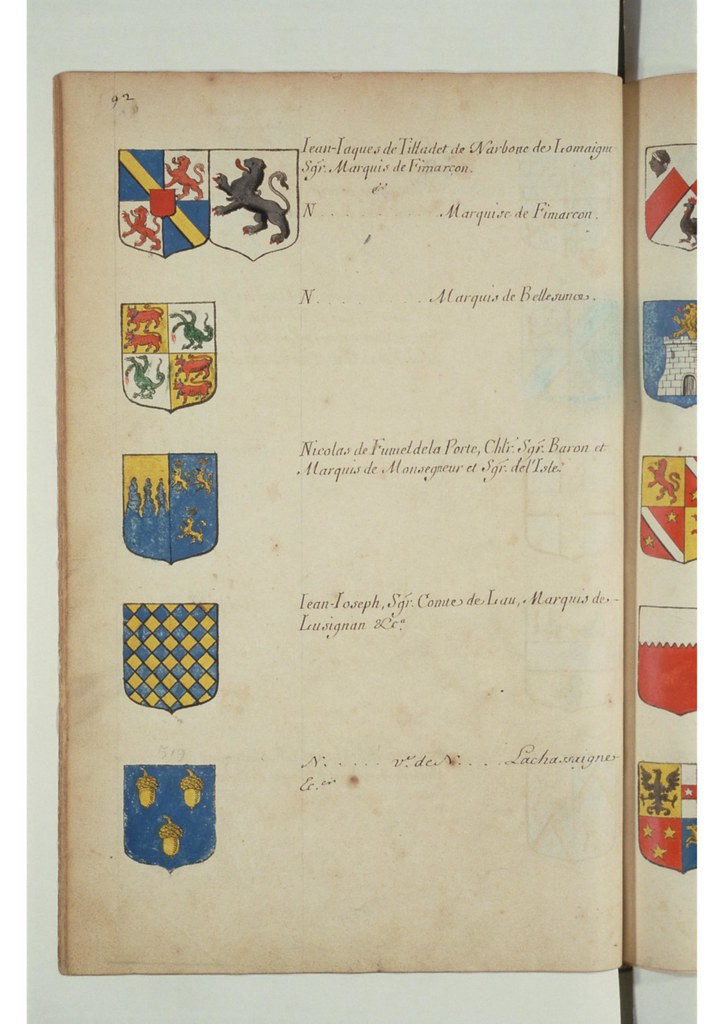 92
Iean-Iaques de Tilladet de Narbone de Lomaigne
Sgr. Marquis de Fimarcon.
&
N . . . . . . . . . . Marquise de Fimarcon.
N . . . . . . . . . Marquis de
Nicolas de Fumel de la Porte, Chlr. Sgr. Baron et
Marquis de Monsegneur et Sgr. de l'Isle.
Iean-Ioseph, Sgr. Comte de Lau, Marquis de
Lusignan &c.ª
519
N. . . . . . v.e de N. . . . . Lachassaigne
Ec.er